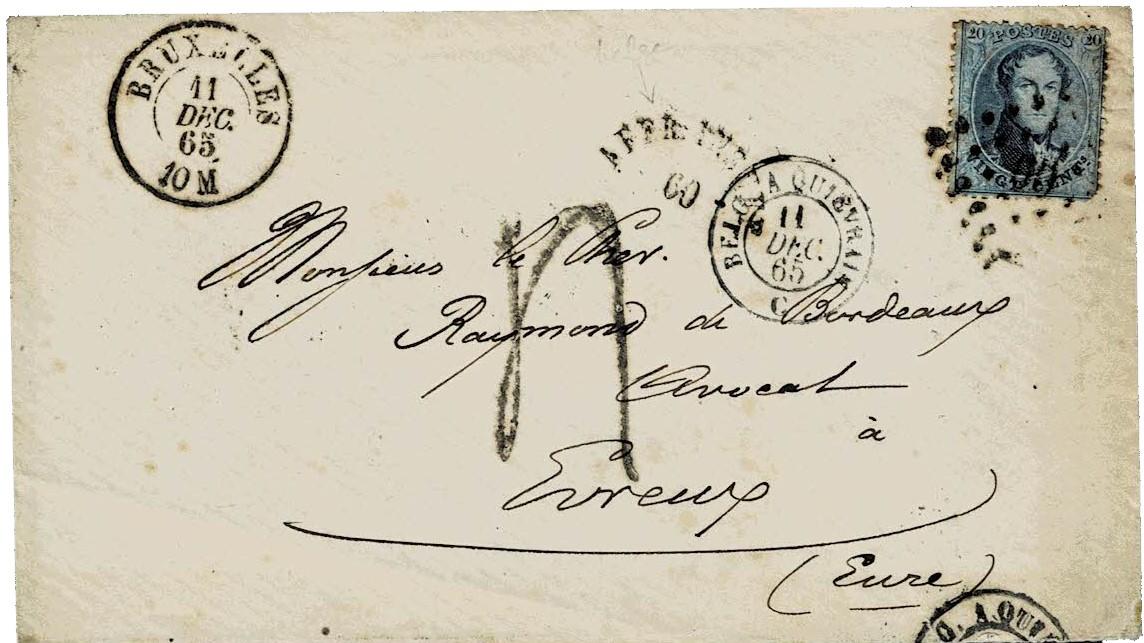 BRUXELLES
11
DEC.
65
10 M
belge
AFFR. INS.
60
BELG. A QUIEVRAIN
11
DEC.
65
C
20 POSTES 20
VINGT CENT.s
Monsieur le Cher.
Raymond de Bordeaux
Avocat
à
Evreux
(Eure)
G. A QUIE